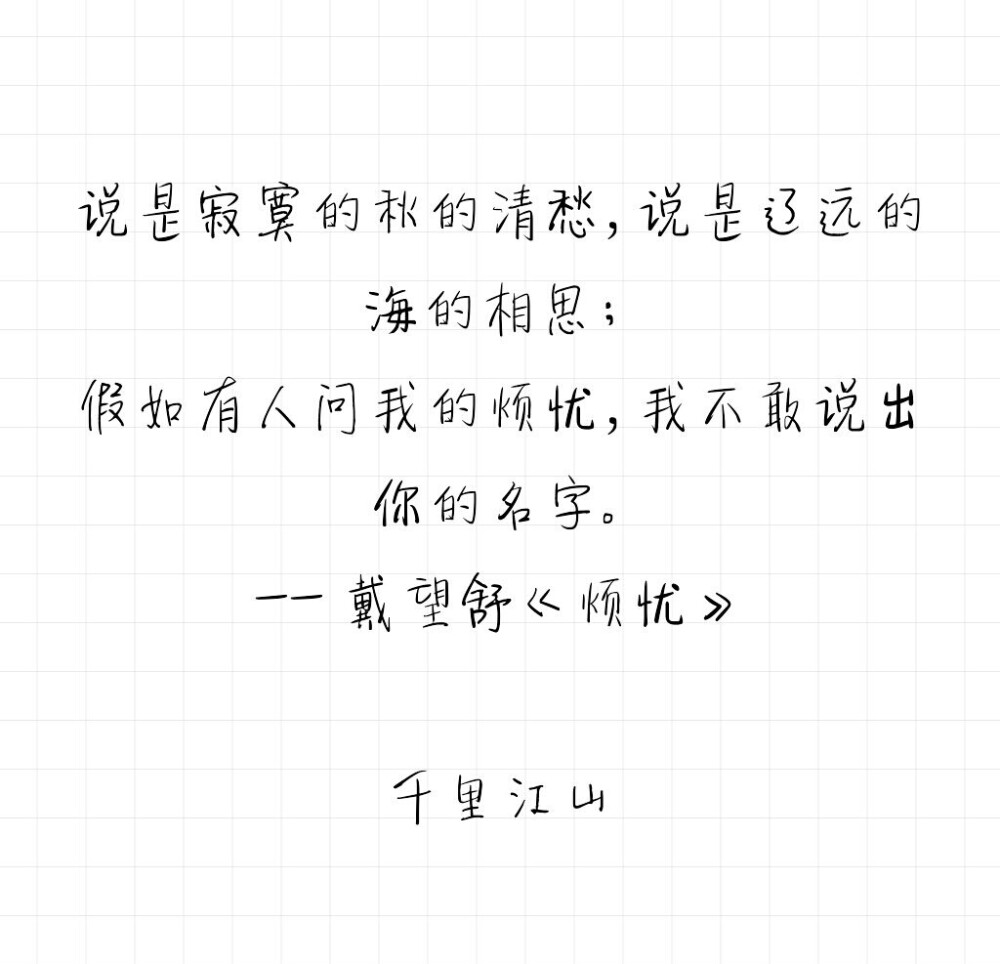 说是寂寞的秋的清愁,说是辽远的
海的相思;
假如有人问我的烦忧,我不敢说出
你的名字。
——戴望舒《烦忧》
千里江山